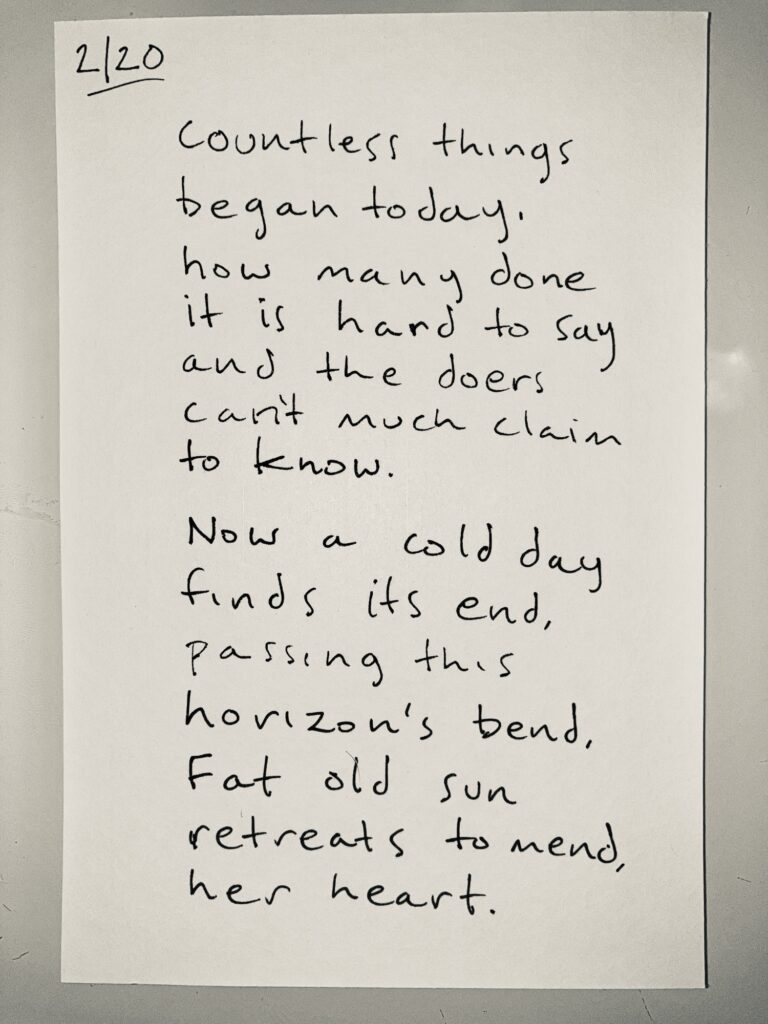 2/20
Countless things
began today.
how many done
it is hard to say
and the doers
can't much claim
to know.
Now a cold day
finds its end,
passing this
horizon's bend,
Fat old sun
retreats to mend,
her heart.